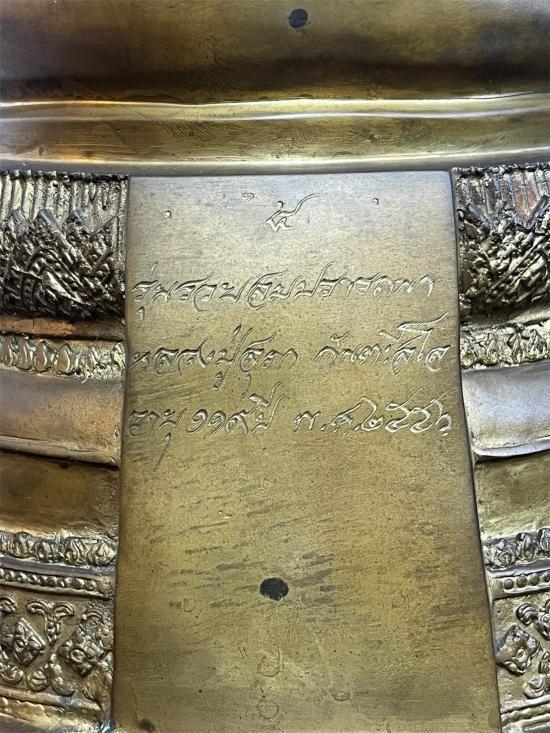 รุ่นรวยสมปรารถนา
หลวงปู่สุภา กันตสีโล
อายุ ๑๑๙ปี พ.ศ.๒๕๕๖